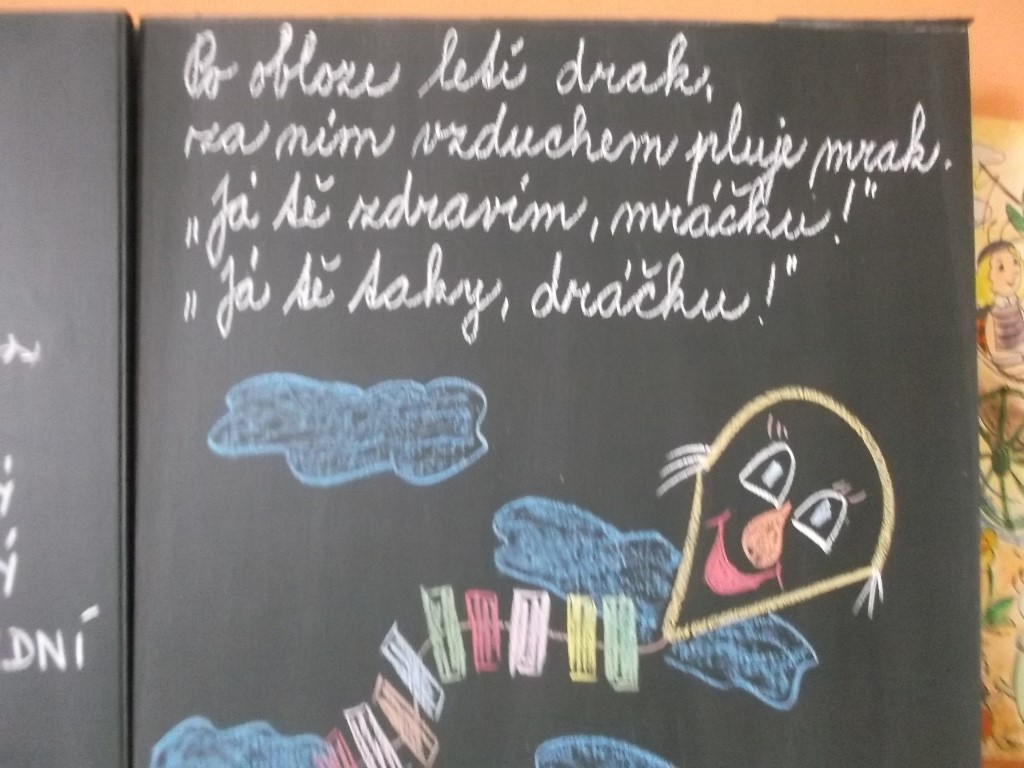 Po obloze letí drak,
za ním vzduchem pluje mrak.
„Já tě zdravím, mráčku!"
„Já tě taky, dráčku!"